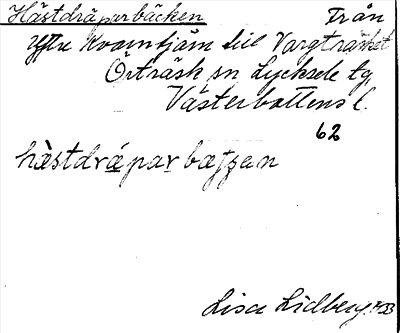 Hästdräparbäcken Från
Yttre Kvarntjärn till Vargträsket
Örträsk sn Lycksele tg
Västerbottens l.
62
hàstdrǽpar bæțșen
Lisa Lidberg 1933